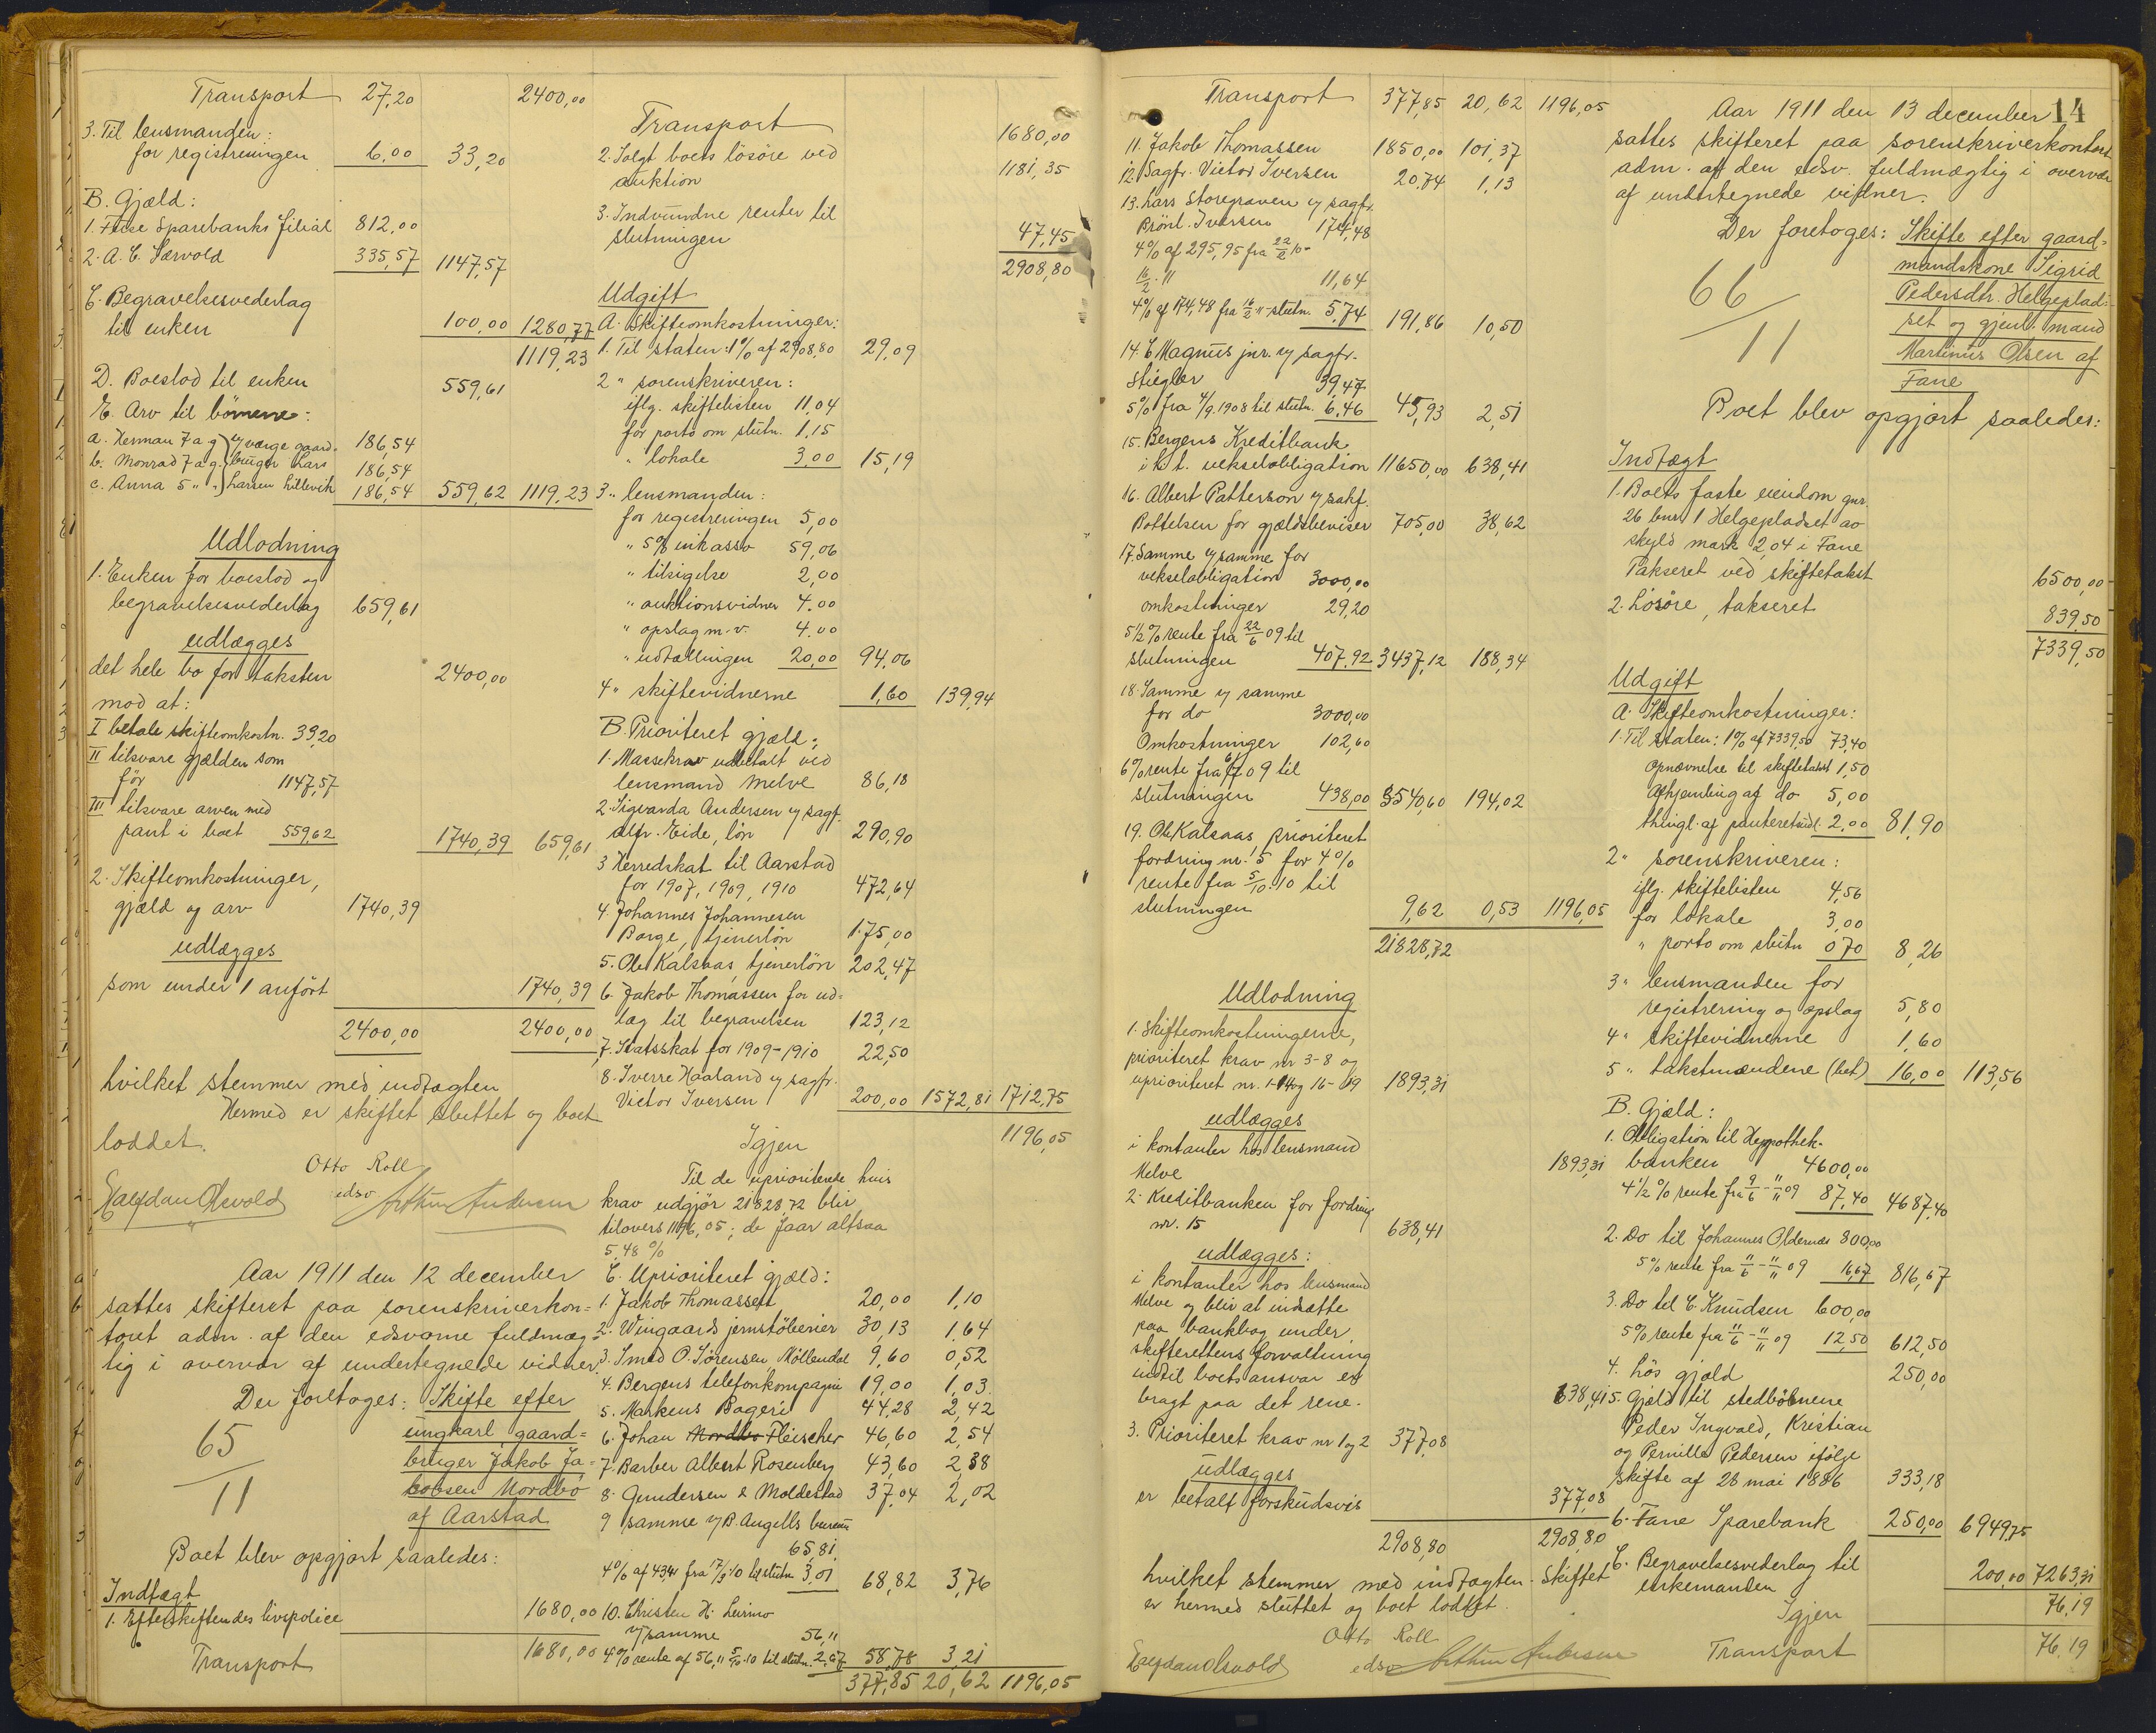 Transport 27,20 2400,00
3. Til lensmanden:
for registreringen 6,00 33,20
B. Gjæld:
1. Fuse Sparebanks filial 812,00
2. A. C. Særvold 335,57 1147,57
C. Begravelsesvederlag
til enken 100,00 1280,77
1119,23
D. Boeslod til enken 559,61
E. Arv til börnene:
a. Herman 7 a g } v/ værge gaard- 186,54
b. Monrad 7 a g. } bruger Lars 186,54
c. Anna 5 " " } Larsen Lillevik 186,54 559,62 1119,23
Udlodning
1. Enken for boeslod og
begravelsesvederlag 659,61
udlægges
det hele bo for taksten 2400,00
mod at:
I betale skifteomkostn. 33,20
II tilsvare gjælden som
för 1147,57
III tilsvare arven med
pant i boet 559,62 1740,39 659,61
2. Skifteomkostninger,
gjæld og arv 1740,39
udlægges
som under 1 anfört 1740,39
2400,00 2400,00
hvilket stemmer med indtægten
Hermed er skiftet sluttet og boet
loddet.
Otto Roll
edsv
Halfdan Olsvold Arthur Andersen
Aar 1911 den 12 december
sattes skifteret paa sorenskriverkon=
toret adm. af den edsvorne fuldmæg=
tig i overvær af undertegnede vidner.
Der foretoges: Skifte efter
65/11
ungkarl, gaard=
bruger Jakob Ja=
kobsen Mordbö
af Aarstad
Boet blev opgjort saaledes:
Indtægt
1. Efterskiftendes livspolice 1680,00
Transport 1680,00
Transport 1680,00
2. Solgt boets lösöre ved
auktion 1181,35
3. Indvundne renter til
slutningen 47,45
2908,80
Udgift
A. Skifteomkostninger:
1. Til staten: 1% af 2908,80 29,09
2 " sorenskriveren:
iflg. skiftelisten 11,04
for porto om slutn. 1,15
" lokale 3,00 15,19
3 " lensmanden:
for registreringen 5,00
" 5% inkasso 59,06
" tilsigelse 2,00
" auktionsvidner 4.00
" opslag m.v. 4.00
" udtællingen 20,00 94,06
4 " skiftevidnerne 1,60 139,94
B. Prioriteret gjæld:
1. Massekrav udbetalt ved
lensmand Melve 86,18
2. Sigvarda Andersen v/ sagf.
Alfr. Eide, lön 290,90
3 Herredskat til Aarstad
for 1907, 1909, 1910 472,64
4. Johannes Johannesen
Borge, tjenerlön 175,00
5. Ole Kalsaas, tjenerlön 202,47
6. Jakob Thomassen for ud=
læg til begravelsen 123,12
7. Statsskat for 1909-1910 22,50
8. Sverre Haaland v/ sagfr.
Victor Iversen 200,00 1572,81 1712,75
Igjen 1196,05
Til de uprioriterede hvis
krav udgjör 21828,72 blir
tilovers 1196,05; de faar altsaa
5,48 %
C. Uprioriteret gjæld:
1. Jakob Thomassen 20,00 1,10
2. Wingaards jernstöberier 30,13 1,64
3. Smed O. Sörensen, Möllendal 9,60 0,52
4. Bergens telefonkompagni 19,00 1,03
5. Markens Bageri 44,28 2,42
6. Johan Fleischer 46,60 2,54
7. Barber Albert Rosenberg 43,60 2,38
8. Gundersen & Moldestad 37,04 2,02
9 samme v/ B. Angells bureau
65,81
4% af 43,41 fra 17/3 10 til slutn 3,01 68,82 3,76
10. Christen H.
v/ samme 56,11
4% rente af 56,11 5/10.10 til slutn. 2,67 58,78 3,21
377,85 20,62 1196,05
Transport 377,85 20,62 1196,05
11. Jakob Thomassen 1850,00 101,37
12. Sagfr. Victor Iversen 20.74 1,13
13. Lars Storegraven v/ sagfr.
Brönl. Iversen 174,48
4% af 295,95 fra 22/2 10-
16/2.11 11,64
4% af 174,48 fra 16/2 11 - slutn. 5,74 191,86 10,50
14. C Magnus jnr. v/ sagfr.
Stiegler 39,47
5% fra 4/9.1908 til slutn. 6,46 45,93 2,51
15. Bergens Kreditbank
i h. t. vekselobligation 11650,00 638,41
16. Albert Patterson v/ sakf.
Bottelsen for gjældsbeviser 705,00 38,62
17. Samme v/ samme for
vekselobligation 3000,00
omkostninger 29,20
5½% rente fra 22/6 09 til
slutningen 407,92 3437,12 188,34
18. Samme v/ samme
for do 3000,00
Omkostninger 102,60
6% rente fra 6/7 09 til
slutningen 438,00 3540,60 194,02
19. Ole Kalsaas, prioriteret
fordring nr. 5 for 4%
rente fra 5/10.10 til
slutningen 9,62 0,53 1196,05
21828,72
Udlodning
1. Skifteomkostningerne,
prioriteret krav nr 3-8 og
uprioriteret nr. 1-14 og 16-19 1893,31
udlægges
i kontanter hos lensmand
Melve 1893,31
2. Kreditbanken for fordring
nr. 15 638,41
udlægges:
i kontanter hos lensmand
Melve og blir at indsætte
paa bankbog under
skifterettens forvaltning
indtil boets ansvar er
bragt paa det rene. 638,41
3. Prioriteret krav nr 1 og 2 377,08
udlægges
er betalt forskudsvis 377,08
2908,80 2908,80
hvilket stemmer med indtægten. Skiftet
er hermed sluttet og boet loddet.
Otto Roll
Halfdan Olsvold edsv Arthur Andersen
14
Aar 1911 den 13 december
sattes skifteret paa sorenskriverkontoret
adm. af den edsv. fuldmægtig i overvær
af undertegnede vidner.
Der foretoges: Skifte efter gaard=
66/11
mandskone Sigrid
Pedersdtr. Helgeplad=
set og gjenl. mand
Martinus Olsen af
Fane
Boet blev opgjort saaledes:
Indtægt
1. Boets faste eiendom gnr.
26 bnr. 1 Helgepladset av
skyld mark 2,04 i Fane
Takseret ved skiftetakst 6500,00
2. Lösöre, takseret 839,50
7339,50
Udgift
A. Skifteomkostninger:
1. Til staten: 1% af 7339,50 73,40
Opnævnelse til skiftetakst 1,50
Afhjemling af do 5,00
thingl. af panteretsudl. 2.00 81,90
2 " sorenskriveren:
iflg. skiftelisten 4,56
for lokale 3,00
" porto om slutn 0 70 8,26
3 " lensmanden for
registrering og opslag 5,80
4 " skiftevidnerne 1,60
5 " takstmændene (bet) 16,00 113,56
B. Gjæld:
1. Obligation til Hypothek-
banken 4600,00
4½% rente fra 9/6 - 11/11 09 87,40 4687,40
2. Do til Johannes Oldernes 800,00
5% rente fra 11/6 - 11/11 09 16,67 816,67
3. Do til C. Knudsen 600,00
5% rente fra 11/6 - 11/11 09 12,50 612,50
4. Lös gjæld 250,00
5. Gjæld til stedbörnene
Peder Ingvald, Kristian
og Pernille Pedersen ifölge
skifte af 28 mai 1886 333,18
6. Fane Sparebank 250,00 6949,75
C. Begravelsesvederlag til
enkemanden 200,00 7263,31
Igjen 76,19
Transport 76,19